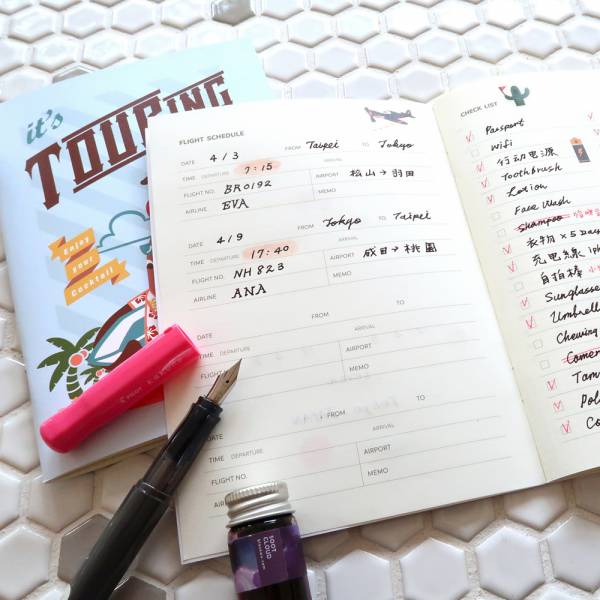 it's
TOURING
Enjoy
your
Cocktail
FLIGHT SCHEDULE
DATE 4/3 FROM Taipei TO Tokyo
TIME DEPARTURE 7:15 ARRIVAL
FLIGHT NO. BR0192 AIRPORT 松山→羽田
AIRLINE EVA MEMO
DATE 4/9 FROM Tokyo TO Taipei
TIME DEPARTURE 17:40 ARRIVAL
FLIGHT NO. NH823 AIRPORT 成田→桃園
AIRLINE ANA MEMO
DATE FROM TO
TIME DEPARTURE ARRIVAL
FLIGHT AIRPORT
MEMO
DATE FROM TO
TIME DEPARTURE ARRIVAL
FLIGHT NO. AIRPORT
MEMO
CHECK LIST
Passport
Wifi
行动电源
Toothbrush
Lotion
Face Wash
Shampoo
衣物 x 5 Day
充电線 iph
自拍棒
Sunglasse
Umbrell
Chewing
Camer
Tam
Pol
Co
SOOT
CLOUD